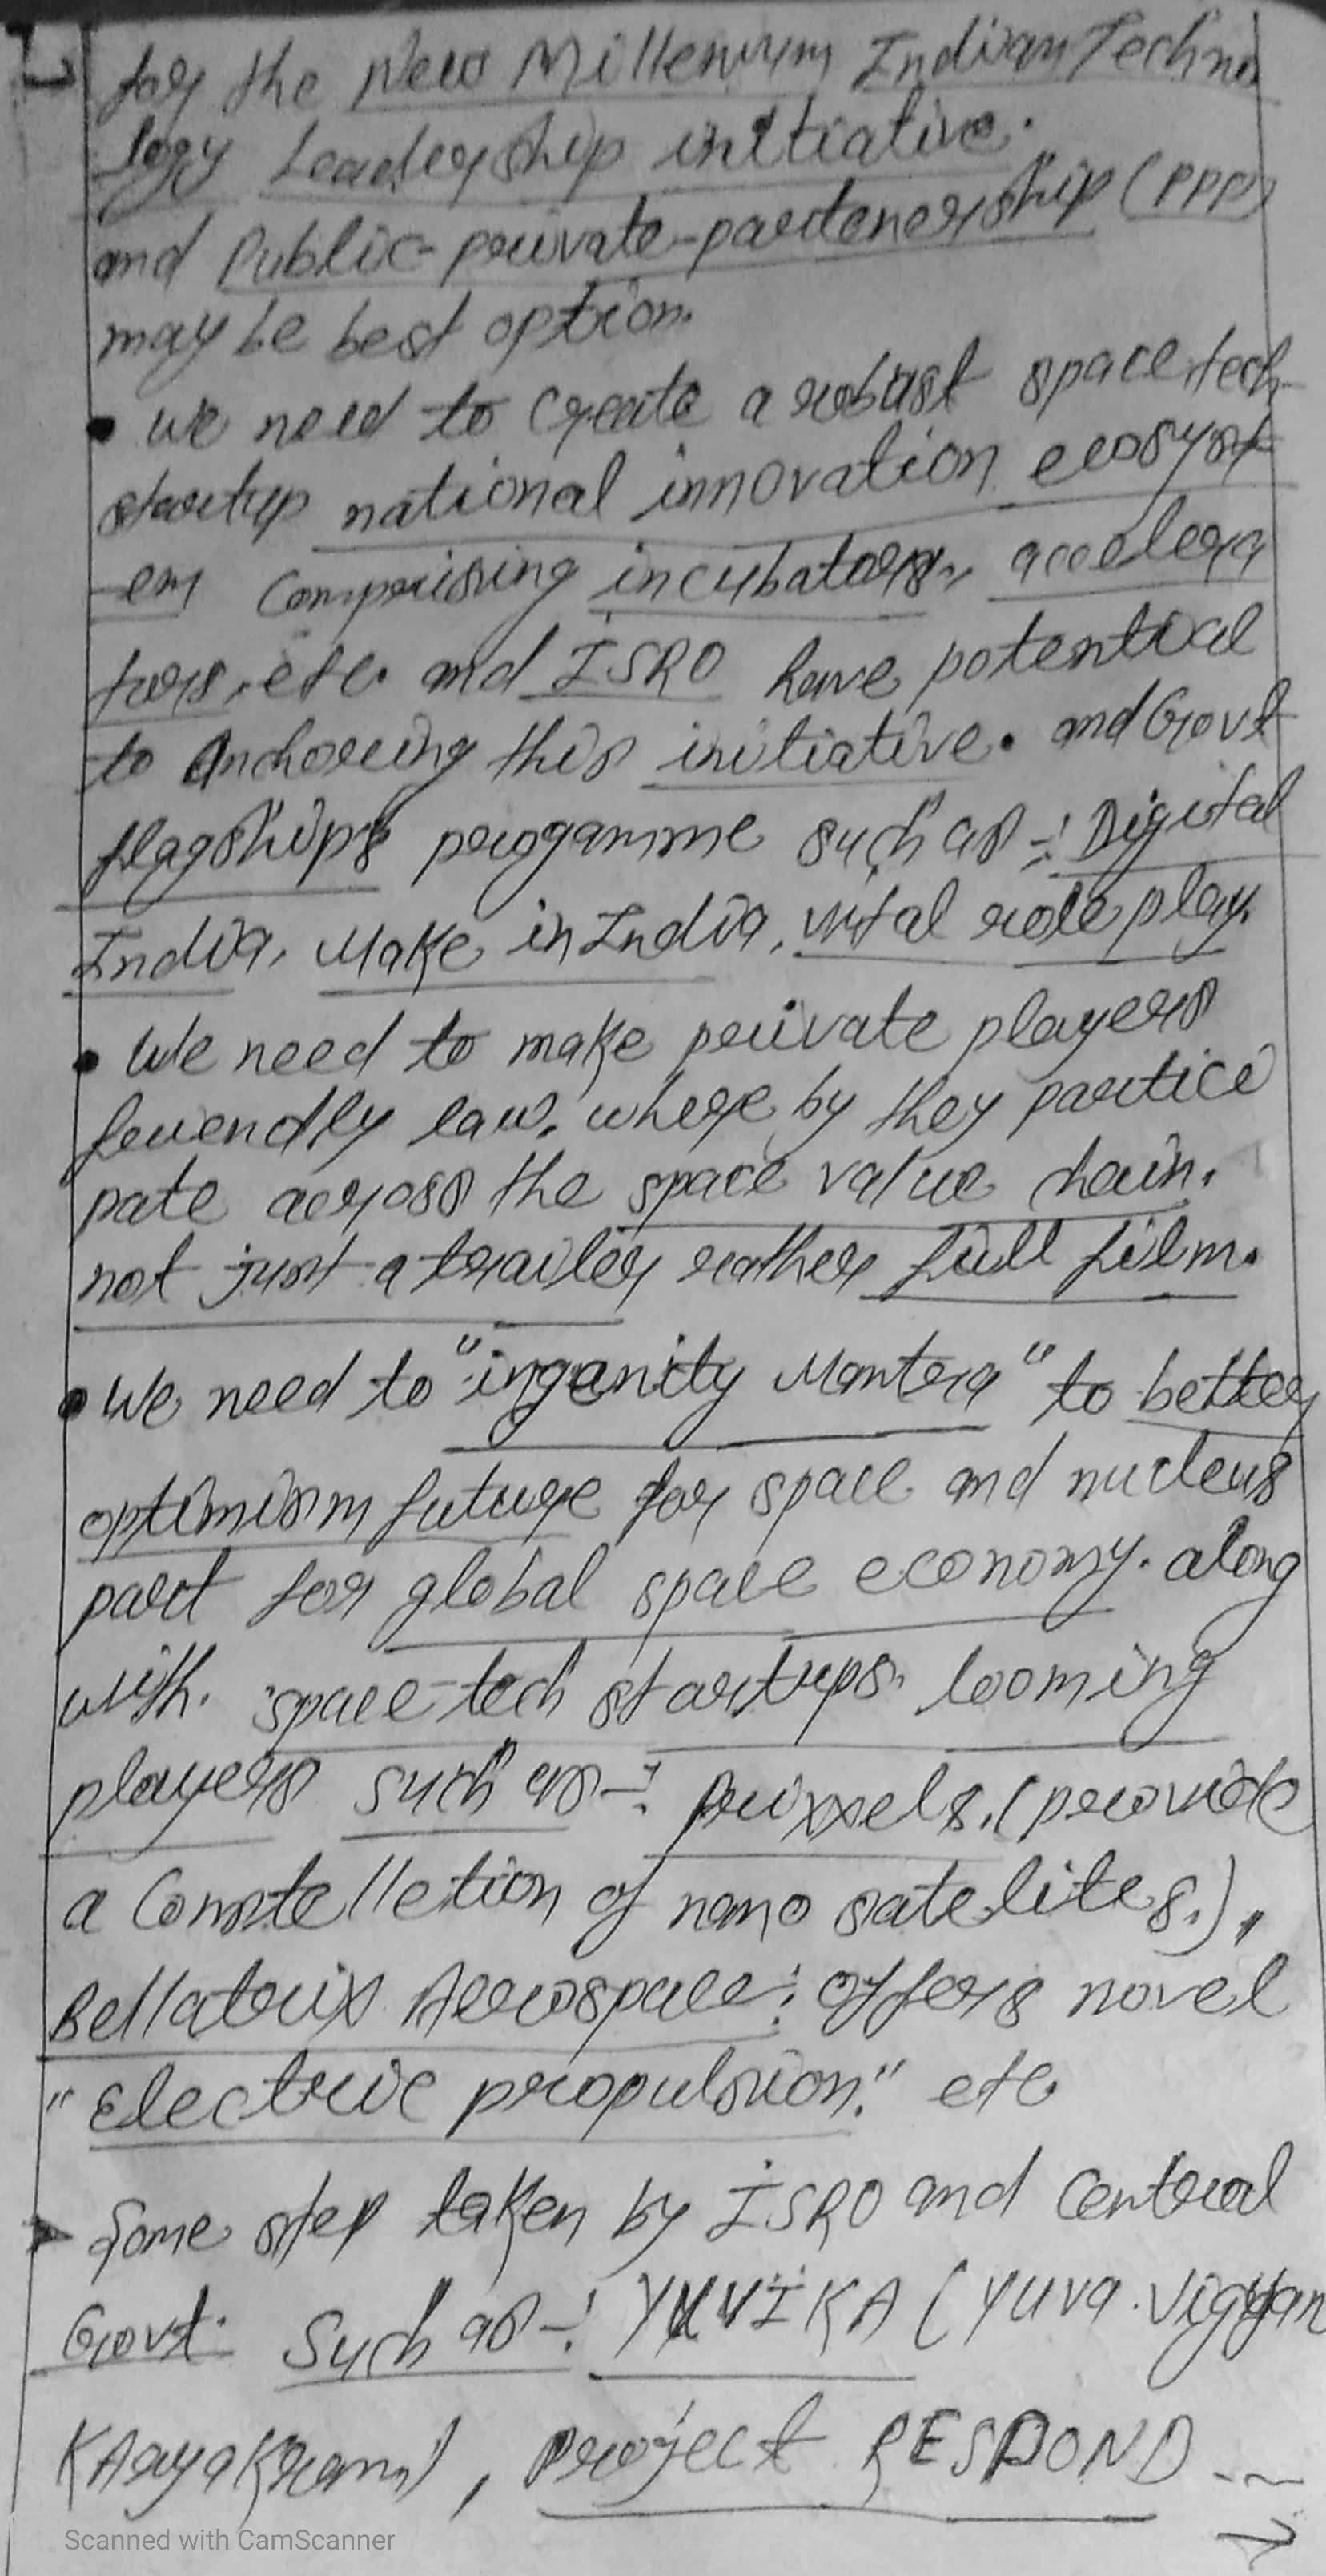 for the New Millenium Indian Techno
logy Leadership initiative.
and Public-private-partenership (PPP)
may be best option.
• we need to create a robust space tech-
startup national innovation ecosyst
-em comprising incubators, accelera
tors, etc. and ISRO have potential
to Anchoring this initiative. and Govt
flagships proggamme such as -: Digital
India, Make in India, vital role play.
• We need to make private players
friendly law, where by they partici
pate across the space value chain.
not just a trailer rather full film.
• We need to "inganity Mantra" to better
optimism future for space and nucleus
part for global space economy. along
with. space-tech startups. looming
players such as -: Prixxels, (provide
a Constelletion of nano satelites.),
Bellatrix Aerospace: offers novel
"Electric propulsion." etc
➤ Some step taken by ISRO and Central
Govt. Such as -: YUVIKA (Yuva. Vigyan
KAryaKram), Project RESPOND ---
→
Scanned with CamScanner